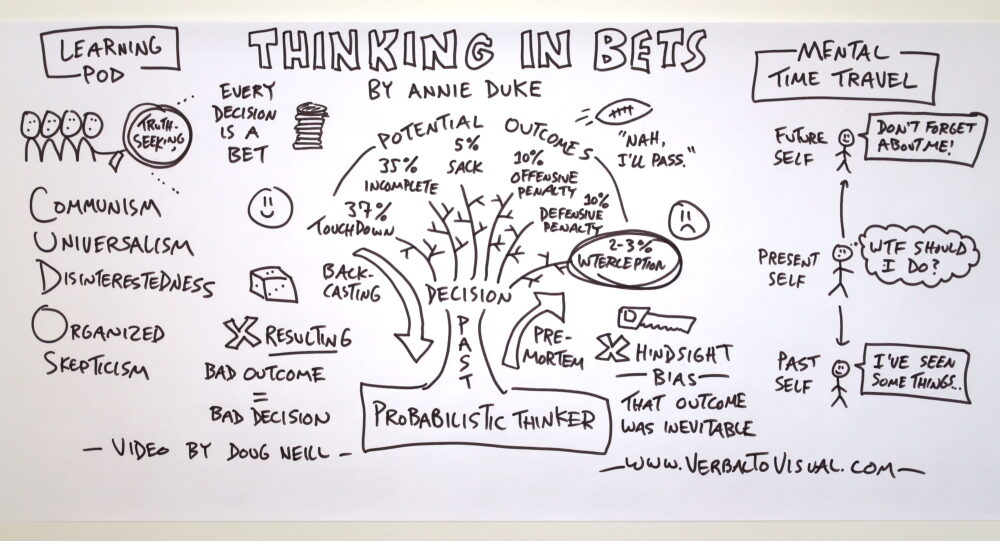 THINKING IN BETS
BY ANNIE DUKE
LEARNING
POD
TRUTH-
SEEKING
COMMUNISM
UNIVERSALISM
DISINTERESTEDNESS
ORGANIZED
SKEPTICISM
EVERY
DECISION
IS A
BET
POTENTIAL OUTCOMES
37%
TOUCHDOWN
35%
INCOMPLETE
5%
SACK
10%
OFFENSIVE
PENALTY
10%
DEFENSIVE
PENALTY
2-3%
INTERCEPTION
"NAH,
I'LL PASS."
BACK-
CASTING
DECISION
PAST
PRE-
MORTEM
PROBABILISTIC THINKER
RESULTING
BAD OUTCOME
=
BAD DECISION
HINDSIGHT
BIAS
THAT OUTCOME
WAS INEVITABLE
MENTAL
TIME TRAVEL
FUTURE
SELF
DON'T FORGET
ABOUT ME!
PRESENT
SELF
WTF SHOULD
I DO?
PAST
SELF
I'VE SEEN
SOME THINGS..
- VIDEO BY DOUG NEILL -
- WWW.VERBALTOVISUAL.COM -